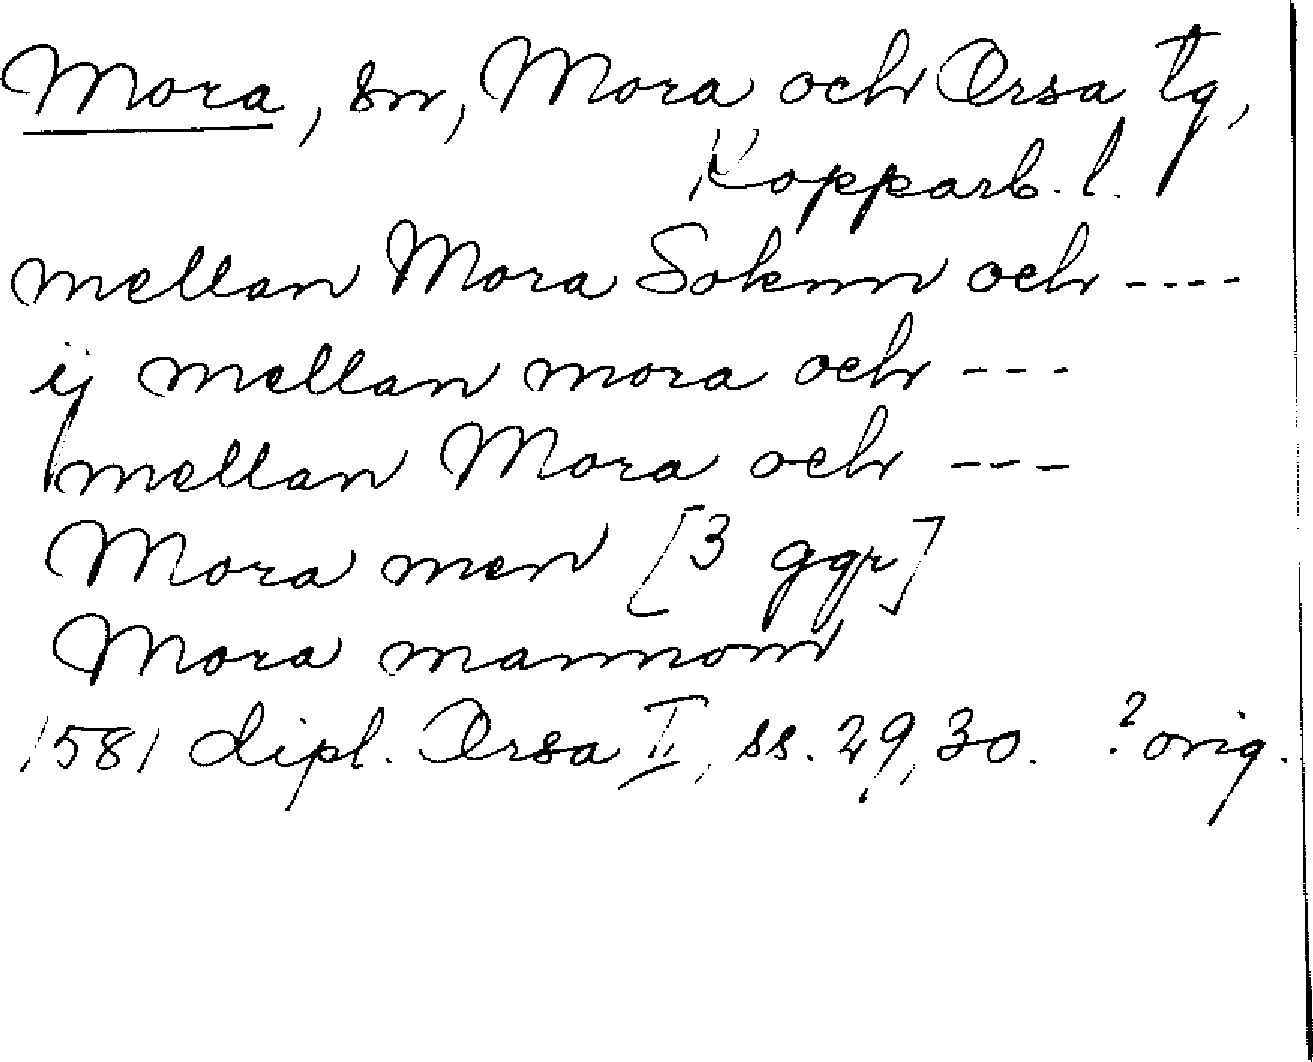 Mora, sn, Mora och Orsa tg,
Kopparb. l.
mellan Mora Soknn och ----
ij mellan mora och ---
mellan Mora och ---
Mora men [3 ggr]
Mora mannom
1581 dipl. Orsa II, ss. 29, 30. ? orig.